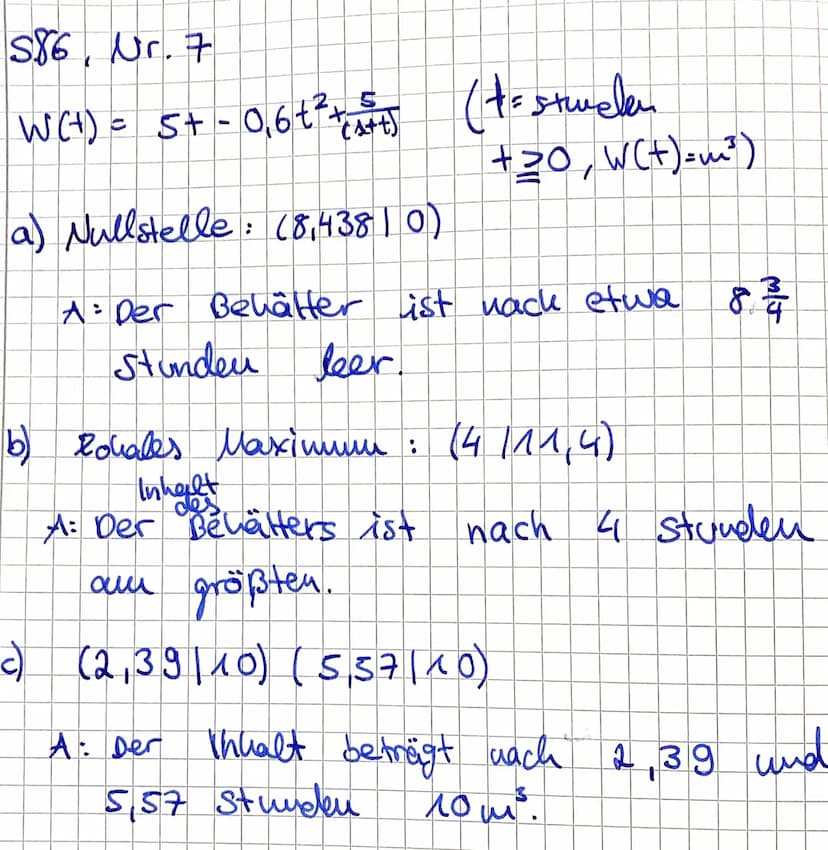 S86, Nr. 7
W(t) = 5t - 0,6t² + 5/(1+t) (t = stunden
t ≥ 0, W(t) = m³)
a) Nullstelle: (8,438 | 0)
A: Der Behälter ist nach etwa 8 3/4
Stunden leer.
b) Lokales Maximum: (4 | 11,4)
A: Der Inhalt des Behälters ist nach 4 Stunden
am größten.
c) (2,39 | 10) (5,57 | 10)
A: Der Inhalt beträgt nach 2,39 und
5,57 Stunden 10 m³.